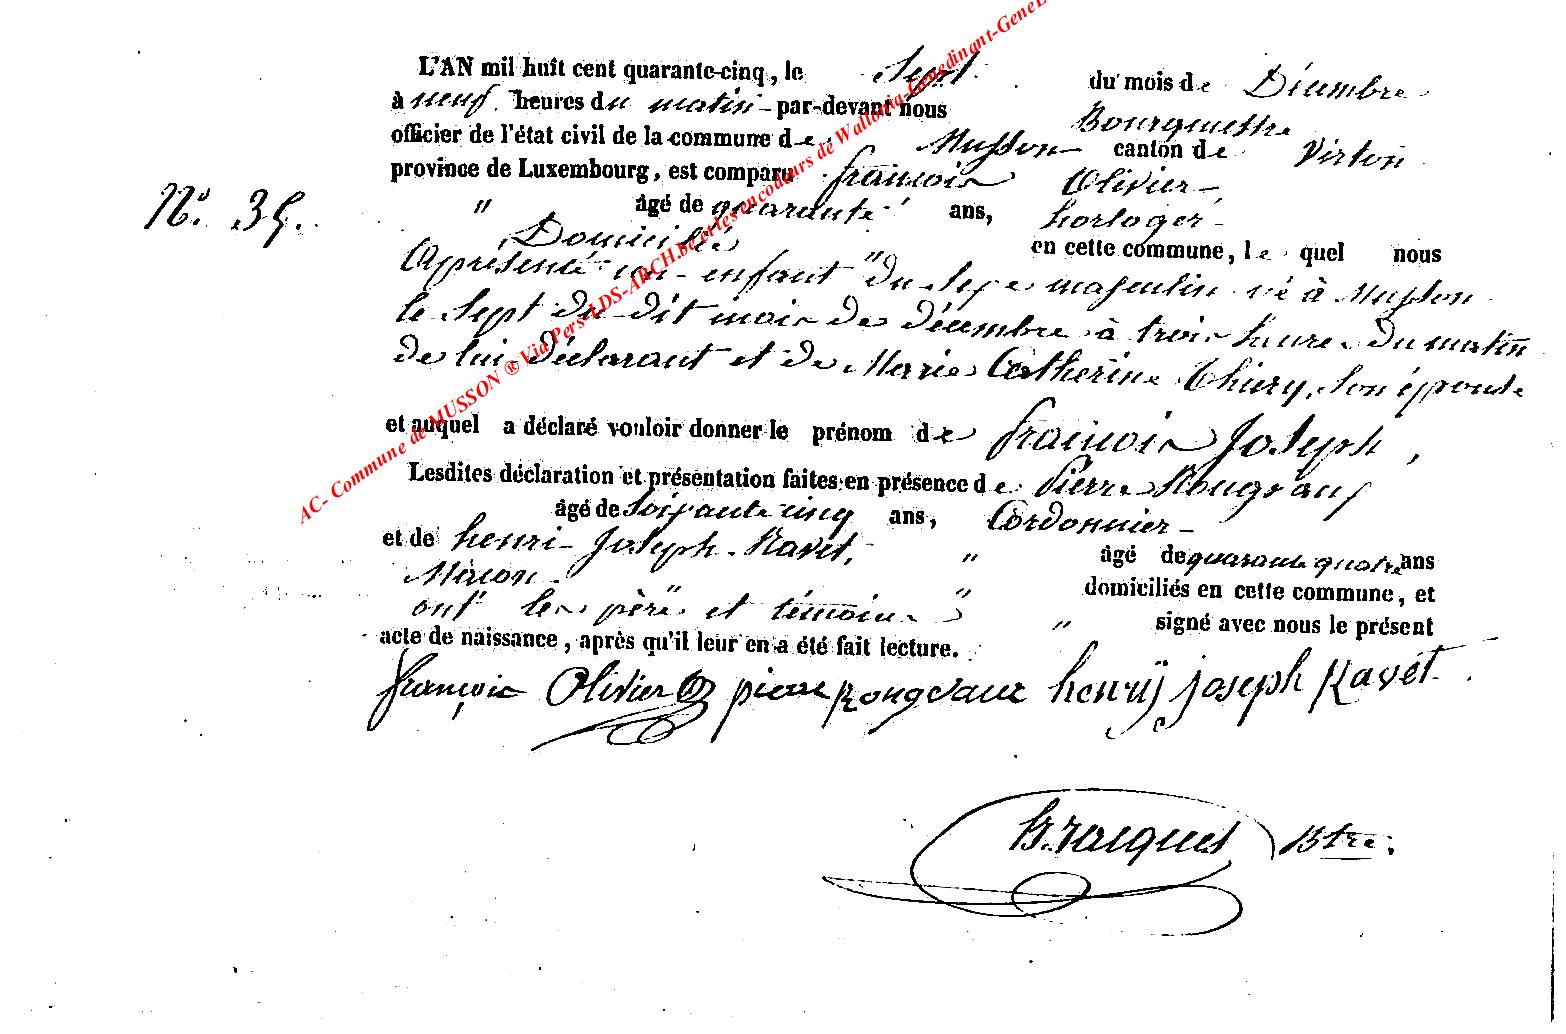 L'AN mil huit cent quarante-cinq, le Sept du mois de Décembre
à neuf heures du matin par-devant nous Bourgmestre
officier de l'état civil de la commune de Musson canton de Virton
province de Luxembourg, est comparu françois Olivier
N° 35. " âgé de quarante ans, horloger
Domicilié en cette commune, le quel nous
a présenté un enfant " du sexe masculin né à Musson
le Sept du dit mois de décembre à trois heures du matin
de lui déclarant et de Marie Catherine Thiery, son épouse
et auquel a déclaré vouloir donner le prénom de françois Joseph,
Lesdites déclaration et présentation faites en présence de Pierre Rongvaux
âgé de soixante cinq ans, Cordonnier
et de henri Joseph Ravet, " âgé de quarante quatre ans
Macon domiciliés en cette commune, et
ont les père et témoins " " signé avec nous le présent
acte de naissance, après qu'il leur en a été fait lecture.
françois Olivier pierre Rongvaux henrÿ joseph Ravet
Btre.
AC- Commune de MUSSON ® Via Pers-LDS-ARCH.be et les encodeurs de Wallonia-Genedinant-GeneL